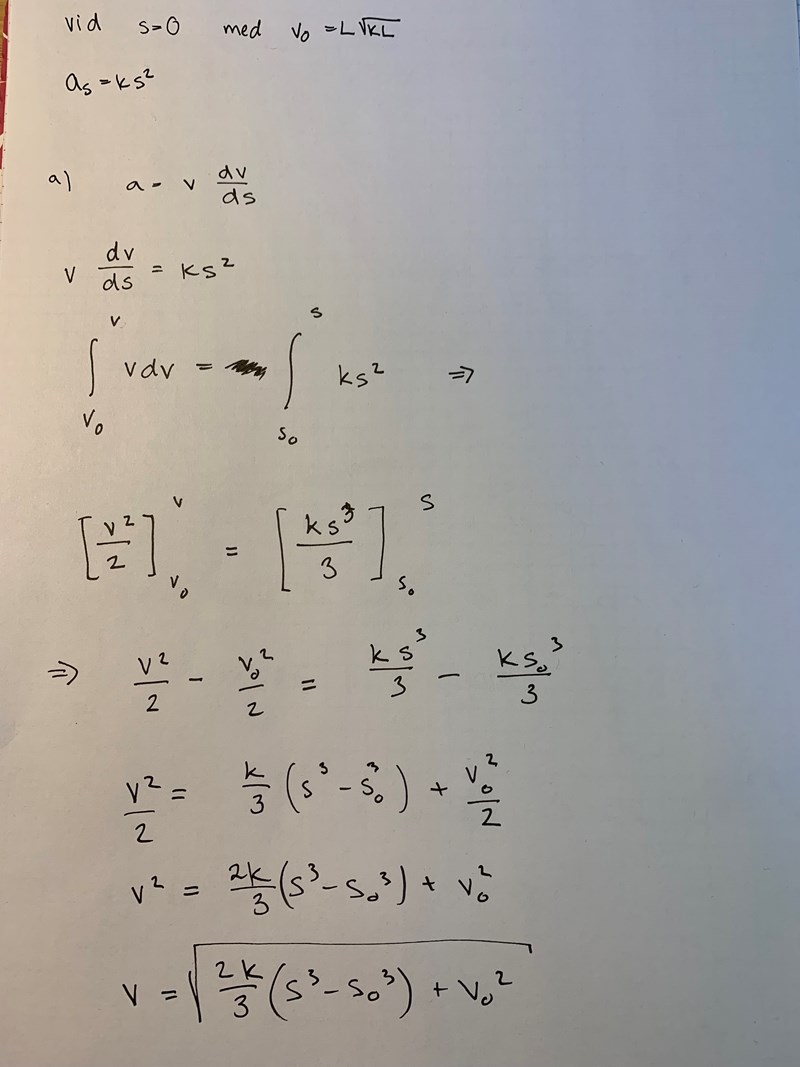 vid s=0 med v₀ = L√KL
aₛ = ks²
a) a = v dv/ds
v dv/ds = ks²
∫_{v₀}^{v} vdv = ∫_{s₀}^{s} ks² ⇒
[v²/2]_{v₀}^{v} = [ks³/3]_{s₀}^{s}
⇒ v²/2 - v₀²/2 = ks³/3 - ks₀³/3
v²/2 = k/3 (s³ - s₀³) + v₀²/2
v² = 2k/3 (s³ - s₀³) + v₀²
v = √(2k/3 (s³ - s₀³) + v₀²)